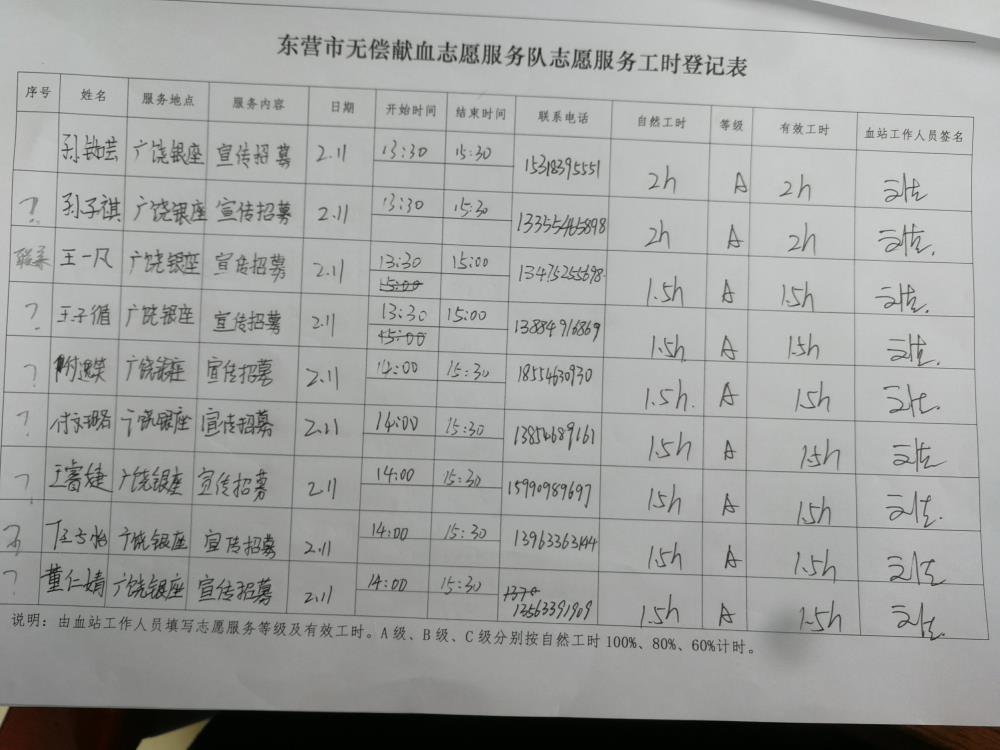 东营市无偿献血志愿服务队志愿服务工时登记表
序号 姓名 服务地点 服务内容 日期 开始时间 结束时间 联系电话 自然工时 等级 有效工时 血站工作人员签名
广饶银座 宣传招募 2.11 13:30 15:30 15318395551 2h A 2h
? 孙子祺 广饶银座 宣传招募 2.11 13:30 15:30 13355465898 2h A 2h
王一凡 广饶银座 宣传招募 2.11 13:30 15:00 13475255698 1.5h A 1.5h
15:00
? 王子循 广饶银座 宣传招募 2.11 13:30 15:00 13884916869 1.5h A 1.5h
15:00
? 广饶银座 宣传招募 2.11 14:00 15:30 18554630930 1.5h A 1.5h
? 广饶银座 宣传招募 2.11 14:00 15:30 13854689161 1.5h A 1.5h
? 王睿婕 广饶银座 宣传招募 2.11 14:00 15:30 15990989697 1.5h A 1.5h
广饶银座 宣传招募 2.11 14:00 15:30 13963363144 1.5h A 1.5h
? 董仁婧 广饶银座 宣传招募 2.11 14:00 15:30 13563391909 1.5h A 1.5h
说明:由血站工作人员填写志愿服务等级及有效工时。A级、B级、C级分别按自然工时100%、80%、60%计时。